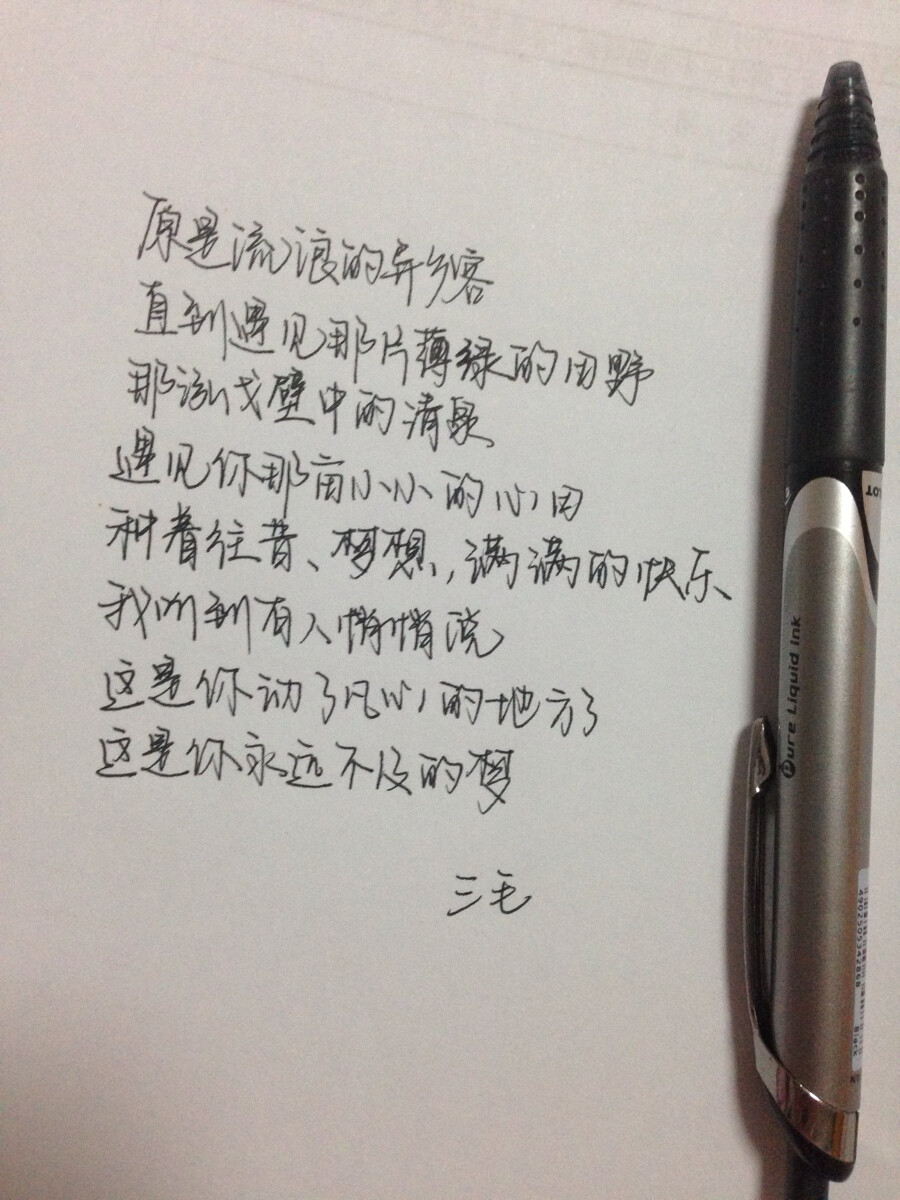 原是流浪的异乡客
直到遇见那片薄绿的田野
那泓戈壁中的清泉
遇见你那亩小小的心田
种着往昔、梦想，满满的快乐
我听到有人悄悄说
这是你动了凡心的地方了
这是你永远不及的梦
三毛
Pure Liquid Ink
LOT
4902505342868
Black